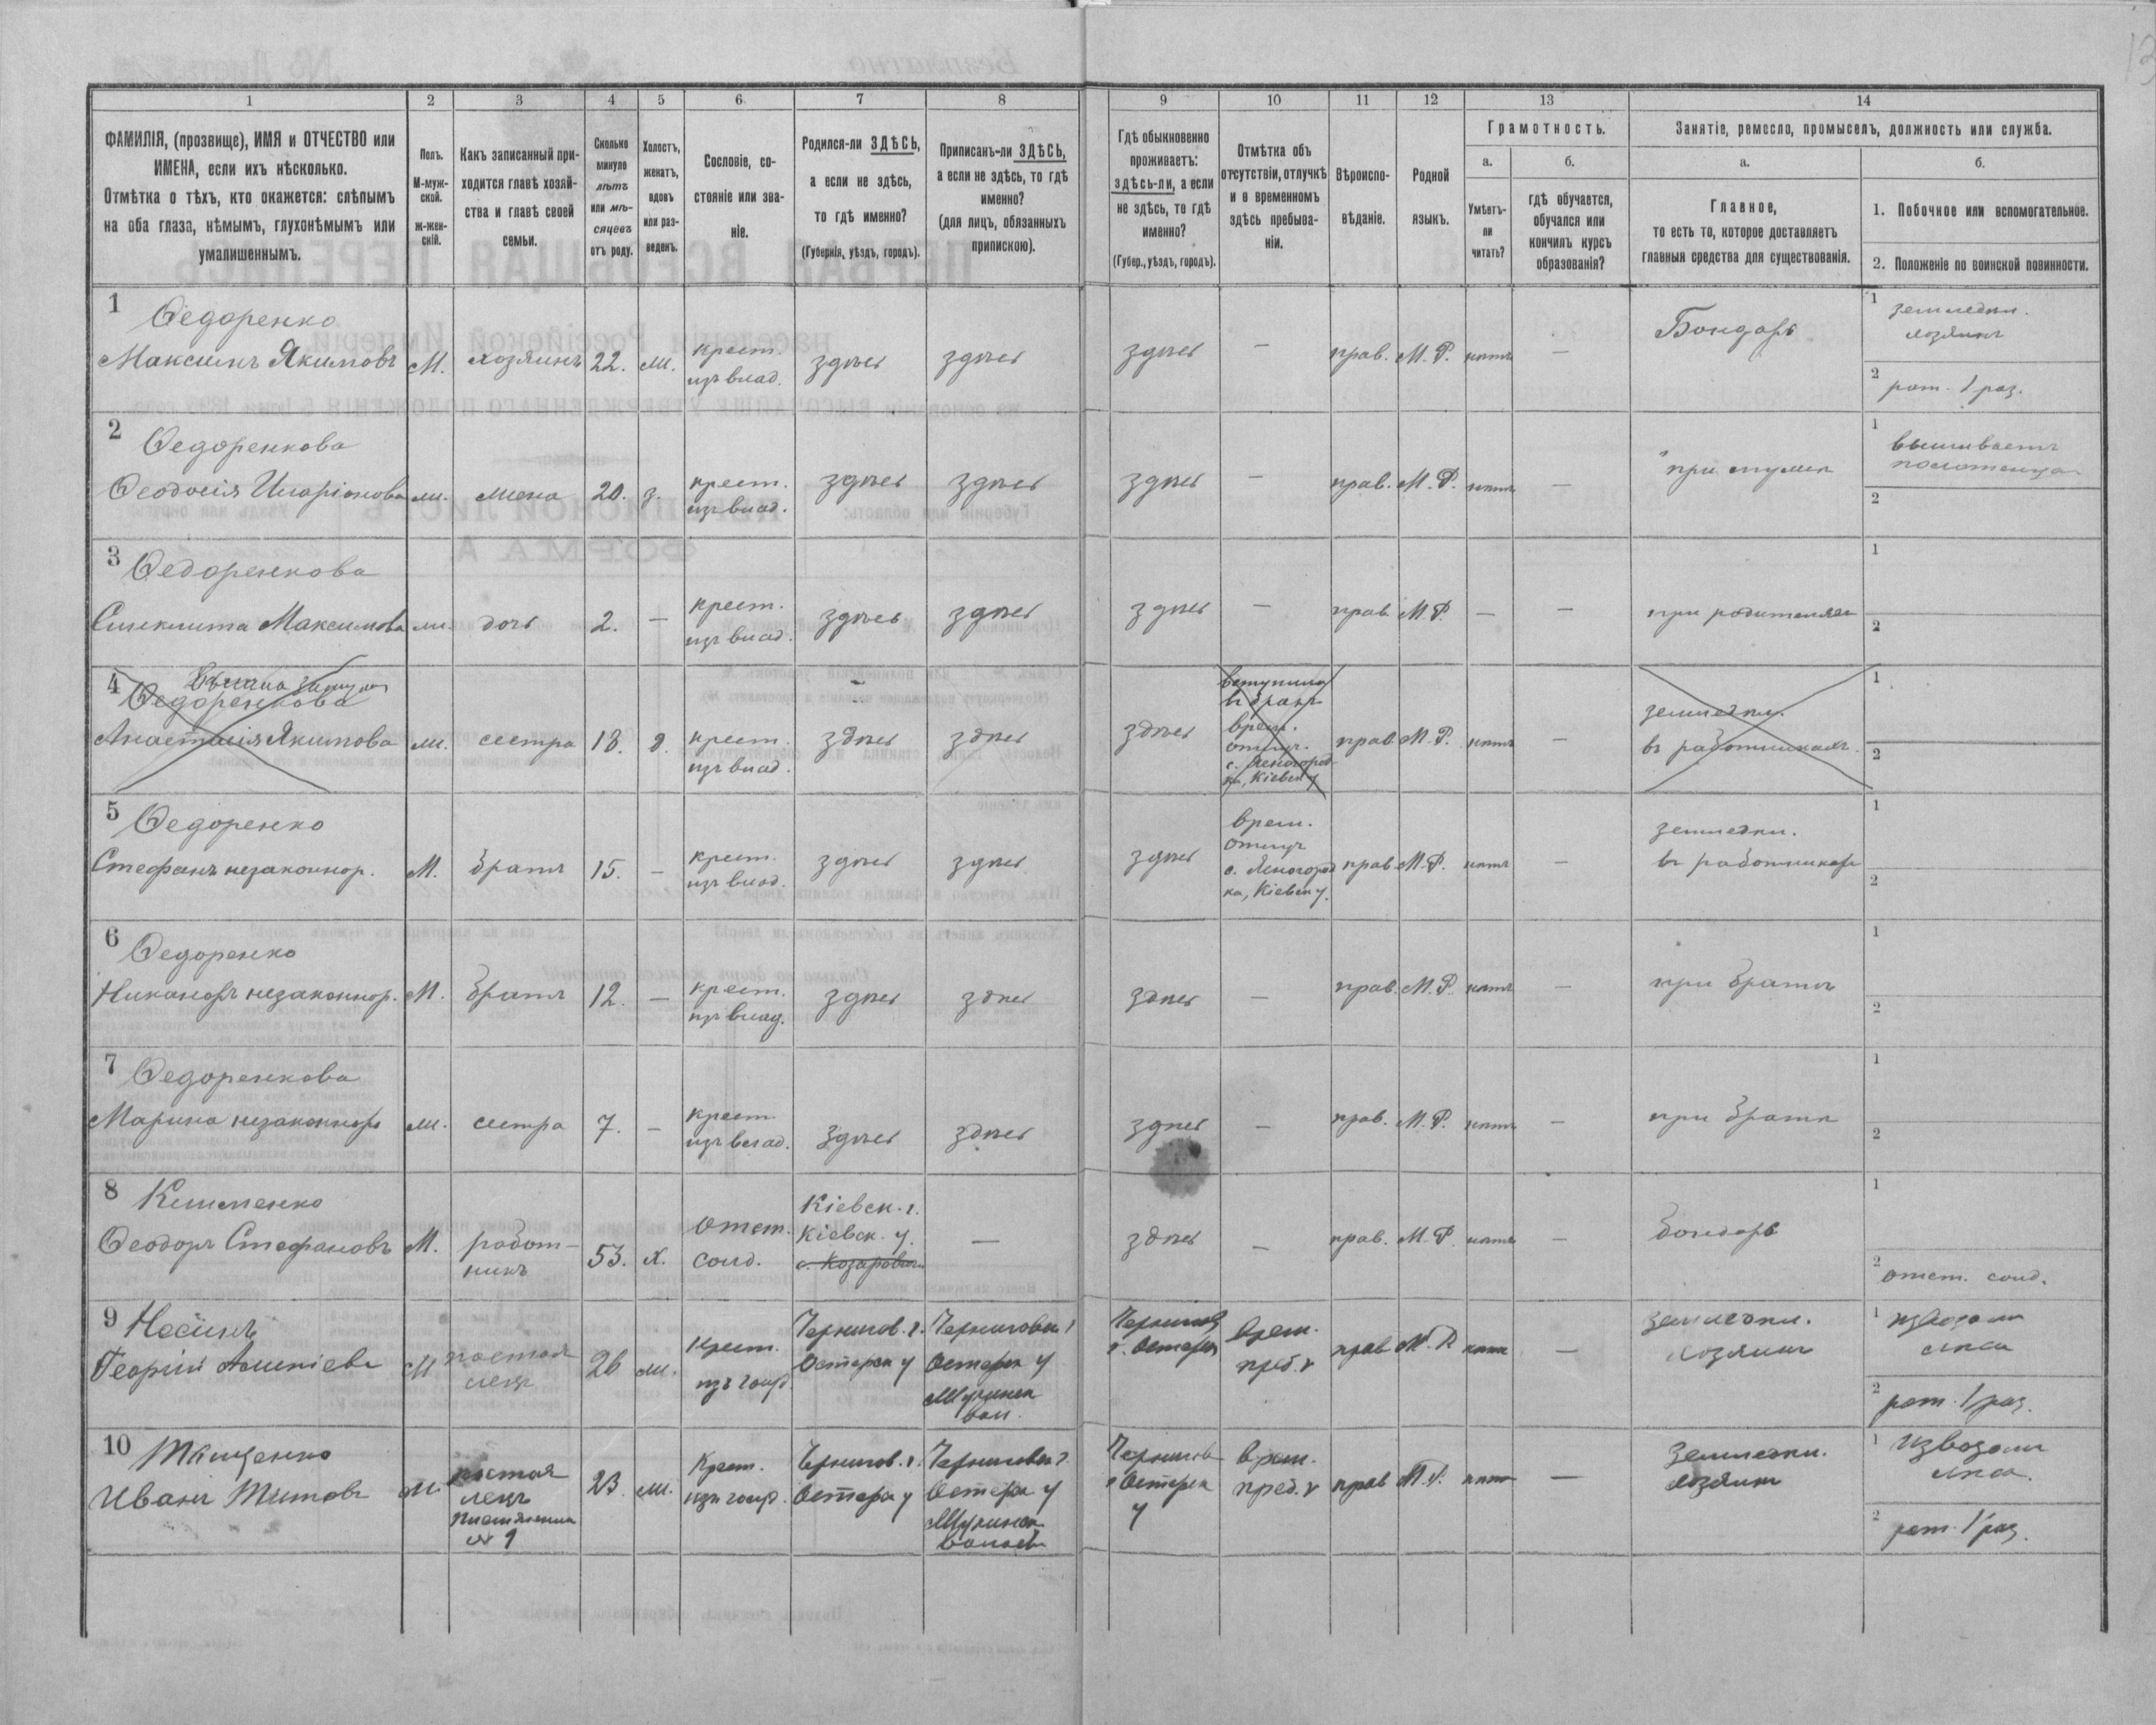 1 2 3 4 5 6 7 8 9 10 11 12 13 14
ФАМИЛІЯ, (прозвище), ИМЯ и ОТЧЕСТВО или
ИМЕНА, если ихъ нѣсколько.
Отмѣтка о тѣхъ, кто окажется: слѣпымъ
на оба глаза, нѣмымъ, глухонѣмымъ или
умалишеннымъ.
Полъ.
М-муж-
ской.
ж-жен-
скій.
Какъ записанный при-
ходится главѣ хозяй-
ства и главѣ своей
семьи.
Сколько
минуло
лѣтъ
или мѣ-
сяцевъ
отъ роду.
Холостъ,
женатъ,
вдовъ
или раз-
веденъ.
Сословіе, со-
стояніе или зва-
ніе.
Родился-ли ЗДѢСЬ,
а если не здѣсь,
то гдѣ именно?
(Губернія, уѣздъ, городъ).
Приписанъ-ли ЗДѢСЬ,
а если не здѣсь, то гдѣ
именно?
(для лицъ, обязанныхъ
припискою).
Гдѣ обыкновенно
проживаетъ:
здѣсь-ли, а если
не здѣсь, то гдѣ
именно?
(Губер., уѣздъ, городъ).
Отмѣтка объ
отсутствіи, отлучкѣ
и о временномъ
здѣсь пребыва-
ніи.
Вѣроиспо-
вѣданіе.
Родной
языкъ.
Грамотность.
а.
Умѣетъ-
ли
читать?
б.
гдѣ обучается,
обучался или
кончилъ курсъ
образованія?
Занятіе, ремесло, промыселъ, должность или служба.
а.
Главное,
то есть то, которое доставляетъ
главныя средства для существованія.
б.
1. Побочное или вспомогательное.
2. Положеніе по воинской повинности.
1
Ѳедоренко
Максимъ Якимовъ
М.
хозяинъ
22.
ж.
крест.
изъ влад.
здѣсь
здѣсь
здѣсь
—
прав.
М. Р.
нѣтъ
—
Бондарь
1
земледѣл.
хозяинъ
2
рат. 1 раз.
2
Ѳедоренкова
Ѳеодосія Иларіонова
ж.
жена
20.
з.
крест.
изъ влад.
здѣсь
здѣсь
здѣсь
—
прав.
М. Р.
нѣтъ
—
при мужѣ
1
вышиваетъ
полотенца
2
3
Ѳедоренкова
Синклита Максимова
ж.
дочь
2.
—
крест.
изъ влад.
здѣсь
здѣсь
здѣсь
—
прав
М. Р.
—
—
при родителяхъ
1
2
4
Ѳедоренкова
Анастасія Якимова
ж.
сестра
18.
д.
крест.
изъ влад.
здѣсь
здѣсь
здѣсь
вступила
въ бракъ
врем.
отлуч.
с. Ясногород-
ка, Кіевск у
прав.
М. Р.
нѣтъ
—
земледѣл.
въ работникахъ.
1
2
5
Ѳедоренко
Стефанъ незаконнор.
М.
братъ
15.
—
крест.
изъ влад.
здѣсь
здѣсь
здѣсь
врем.
отлуч
с. Ясногород
ка, Кіевск у.
прав
М. Р.
нѣтъ
—
земледѣл.
въ работникахъ
1
2
6
Ѳедоренко
Никаноръ незаконнор.
М.
братъ
12.
—
крест.
изъ влад.
здѣсь
здѣсь
здѣсь
—
прав.
М. Р.
нѣтъ
—
при братѣ
1
2
7
Ѳедоренкова
Марина незаконнор
ж.
сестра
7.
—
крест.
изъ влад.
здѣсь
здѣсь
здѣсь
—
прав.
М. Р.
нѣтъ
—
при братѣ
1
2
8
Клименко
Ѳеодоръ Стефановъ
М.
работ-
никъ
53.
х.
отст.
солд.
Кіевск. г.
Кіевск. у.
с. Козаровичи
—
здѣсь
—
прав.
М. Р.
нѣтъ
—
бондарь
1
2
отст. солд.
9
Георгій
М
постоя
лецъ
26
ж.
Крест.
изъ госуд.
Чернигов. г.
Остерск у
Черниговск г
Остерск у
вол.
Чернигов
г. Остерск
врем.
преб.
прав
М. Р
нѣтъ
—
земледѣл.
хозяинъ
1
извозомъ
лѣса
2
рат. 1 раз.
10
Тищенко
Иванъ Титовъ
М
постоя
лецъ
№ 9
23.
ж.
Крест.
изъ госуд.
Чернигов. г.
Остерск у
Черниговск г
Остерск у
волость
Чернигов
г Остерск
у
врем.
преб.
прав
М. Р.
нѣтъ
—
Земледѣл.
хозяинъ
1
извозомъ
лѣса.
2
рат. 1 раз.